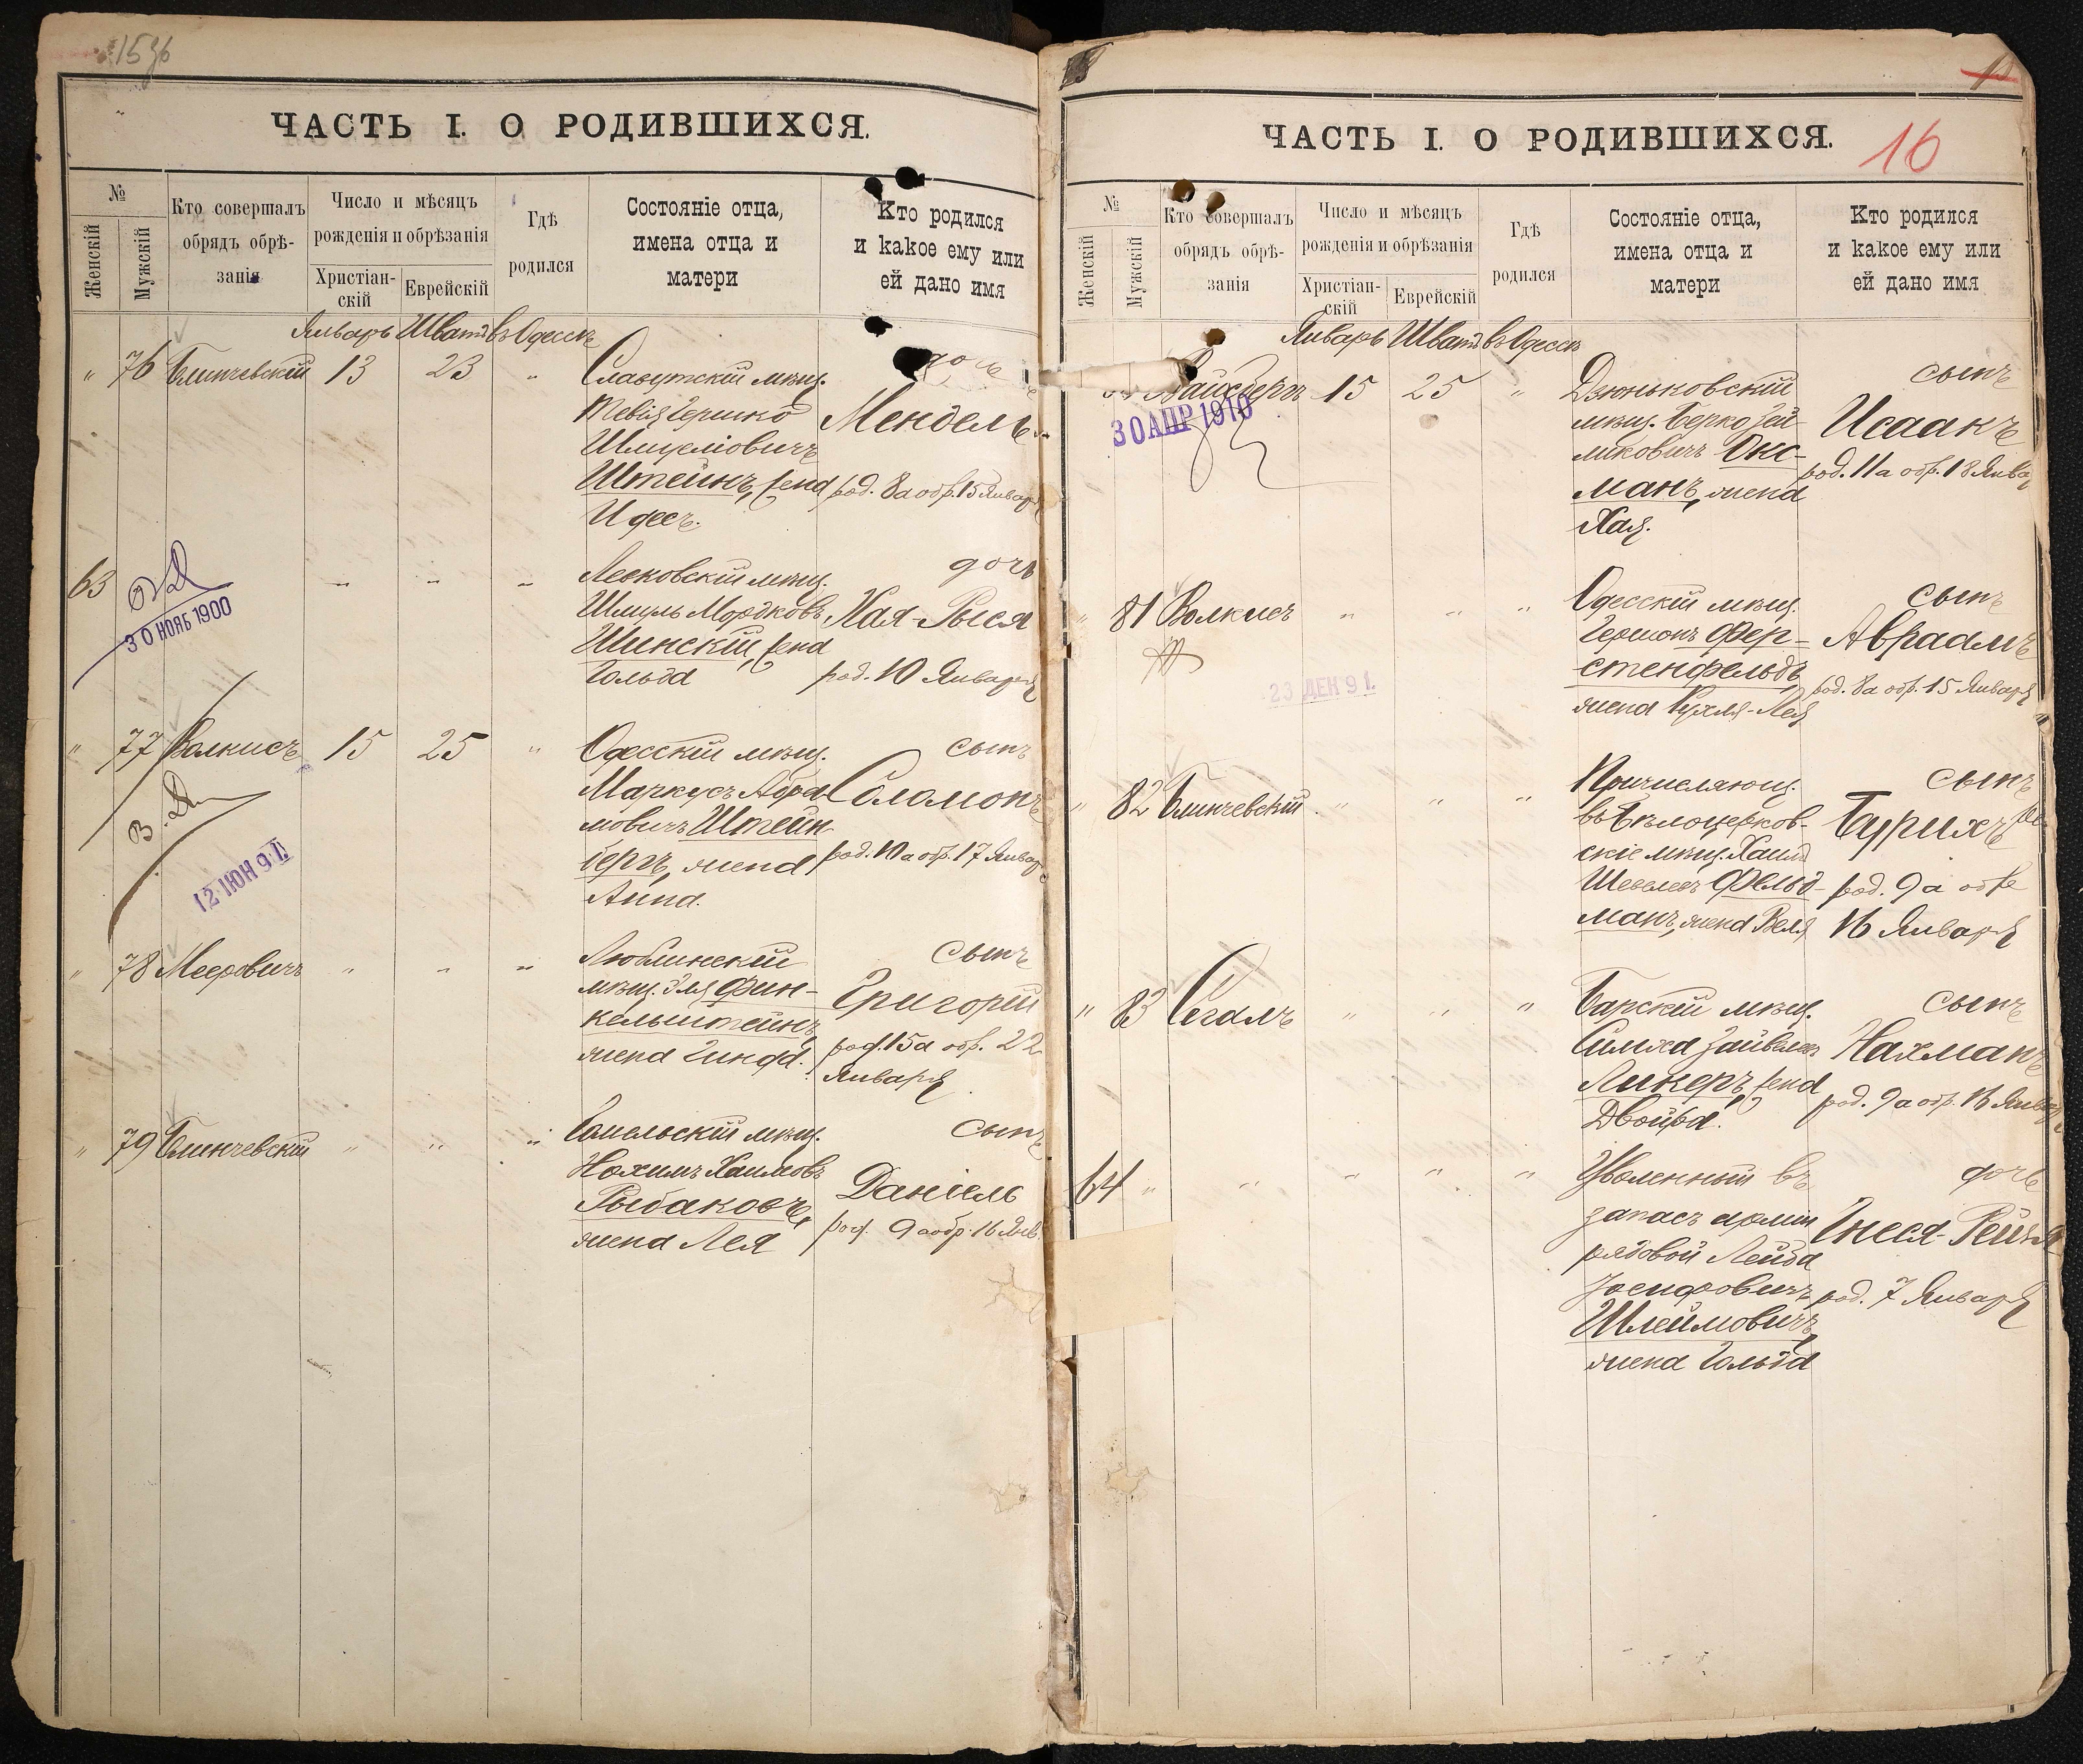 ЧАСТЬ I. О РОДИВШИХСЯ.
№
Женскій
Мужскій
Кто совершалъ
обрядъ обрѣ-
занія
Число и мѣсяцъ
рожденія и обрѣзанія
Христіан-
скій
Еврейскій
Гдѣ
родился
Состояніе отца,
имена отца и
матери
Кто родился
и какое ему или
ей дано имя
Январь Шватъ въ Одессѣ
" 76 Блинчевскій 13 23 "
Славутскій мѣщ.
Тевія Гершко
Шмулiовичъ
Штейнъ, жена
Идесъ.
Мендель
род. 8 а обр. 15 Января
63
30 НОЯБ 1900
мѣщ.
Шмуль Мордковъ
Шинскій, жена
Гольда
дочь
Хая-Рыся
род. 10 Января
" 77 Волкисъ 15 25 "
12 ІЮН 91
Одесскій мѣщ.
Маркусъ Абра
мовичъ Штейн
бергъ, жена
Анна.
сынъ
Соломонъ
род. 10 а обр. 17 Января
" 78 Мееровичъ " " "
Люблинскій
мѣщ. Эля Фин-
кельштейнъ,
жена Гинда.
сынъ
Григорій
род. 15 а обр. 22
Января
" 79 Блинчевскій " " "
Гомельскій мѣщ.
Нохимъ Хаимовъ
Рыбаковъ,
жена Лея
сынъ
Даніель
род. 9 а обр. 16 Янв.
ЧАСТЬ I. О РОДИВШИХСЯ.
16
№
Женскій
Мужскій
Кто совершалъ
обрядъ обрѣ-
занія
Число и мѣсяцъ
рожденія и обрѣзанія
Христіан-
скій
Еврейскій
Гдѣ
родился
Состояніе отца,
имена отца и
матери
Кто родился
и какое ему или
ей дано имя
Январь Шватъ въ Одессѣ
Вайсбергъ 15 25 "
30 АПР 1910
Дзюньковскій
мѣщ. Берко Зей
ликовичъ Окс-
манъ, жена
Хая.
сынъ
Исаакъ
род. 11 а обр. 18 Янва
" 81 Волкисъ " " "
23 ДЕК 91
Одесскій мѣщ.
Гершонъ Фер-
стенфельдъ,
жена Рухля-Лея
сынъ
Авраамъ
род. 8 а обр. 15 Января
" 82 Блинчевскій " " "
Причисляющ.
въ Бѣлоцерков-
скіе мѣщ. Хаимъ
Шевелевъ Фельд-
манъ, жена Веля
сынъ
Бурихъ
род. 9 а обр
16 Января
" 83 Сегалъ " " "
Барскій мѣщ.
Симха Зайвелевъ
Ликеръ, жена
Двойра.
сынъ
Нахманъ
род. 9 а обр. 16 Января
64 " " " " "
Уволенный въ
запасъ арміи
рядовой Лейба
Іосифовичъ
Шлеймовичъ,
жена Гольда
дочь
Гнеся-Рейзя
род. 7 Января